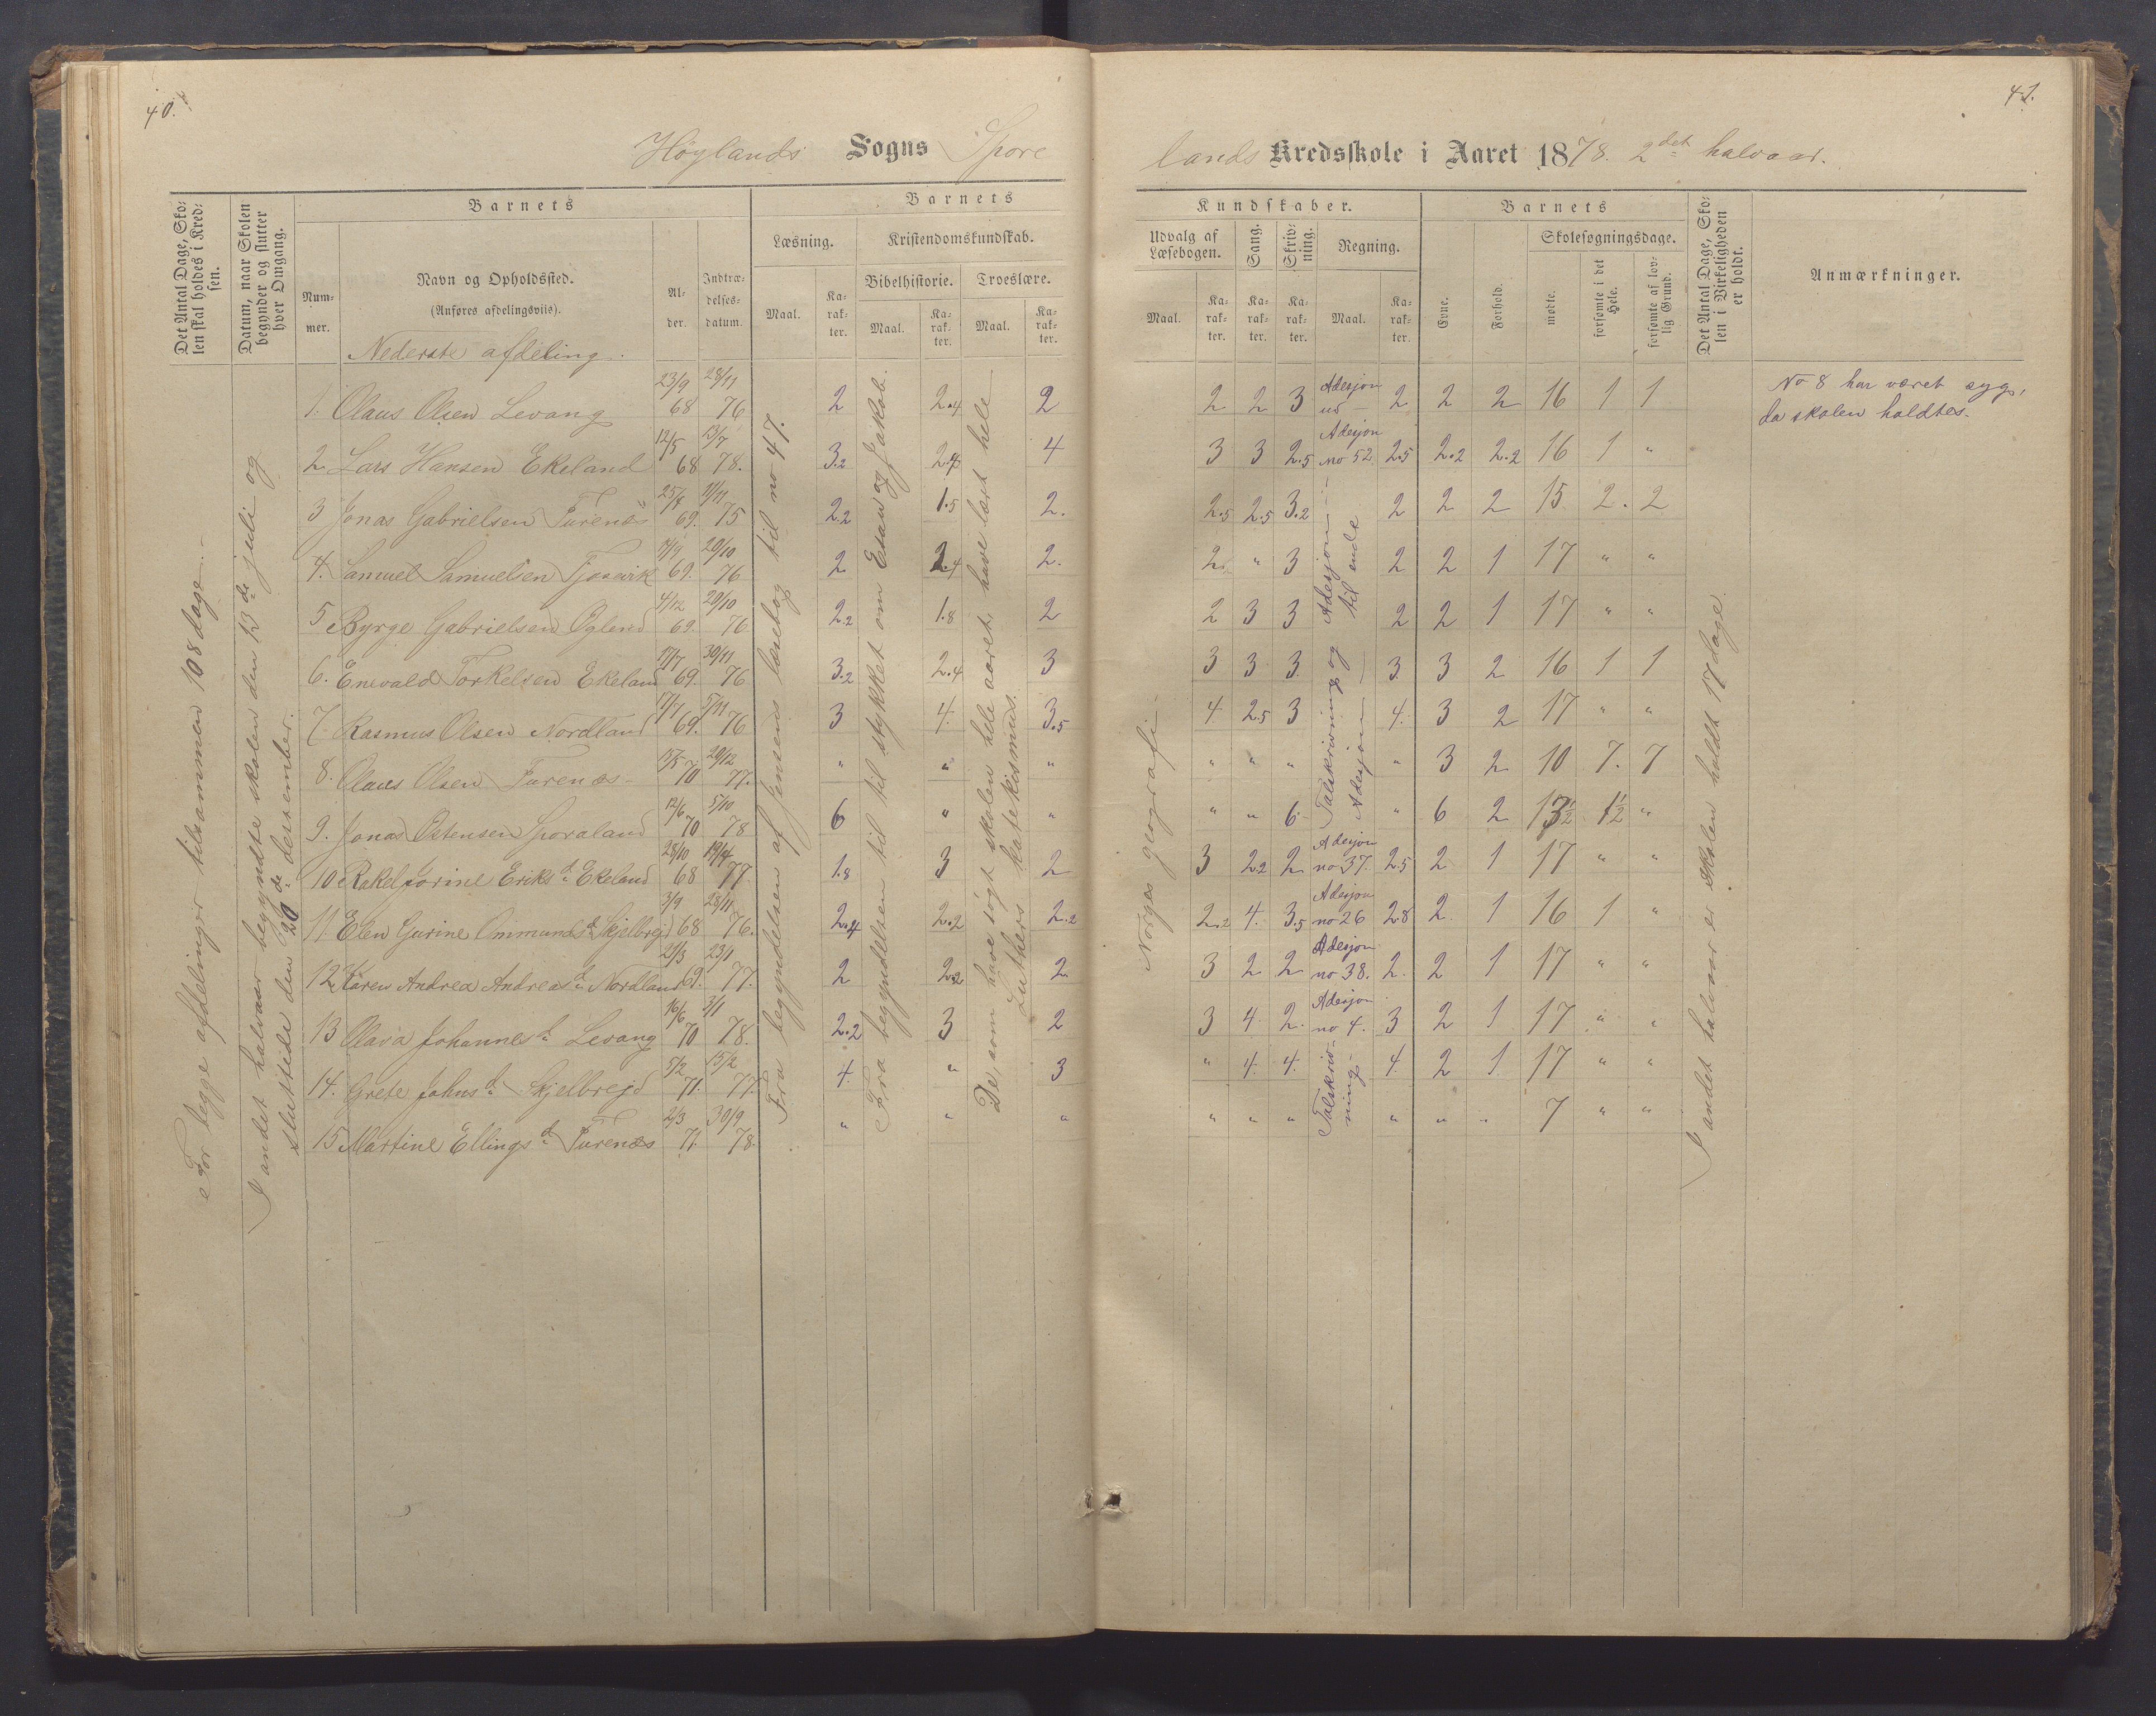 40.
41.
Höylands Sogns Spore
lands Kredsskole i Aaret 1878. 2det halvaar.
Det Antal Dage, Sko-
len skal holdes i Kred-
sen.
Datum, naar Skolen
begynder og slutter
hver Omgang.
Barnets
Num-
mer.
Navn og Opholdssted.
(Anføres afdelingsviis).
Al-
der.
Indtræ-
delses-
datum.
Barnets
Læsning.
Maal.
Ka-
rak-
ter.
Kristendomskundskab.
Bibelhistorie.
Maal.
Ka-
rak-
ter.
Troeslære.
Maal.
Ka-
rak-
ter.
Kundskaber.
Udvalg af
Læsebogen.
Maal.
Ka-
rak-
ter.
Sang.
Ka-
rak-
ter.
Skriv-
ning.
Ka-
rak-
ter.
Regning.
Maal.
Ka-
rak-
ter.
Barnets
Evne.
Forhold.
Skolesøgningsdage.
mødte.
forsømte i det
Hele.
forsømte af lov-
lig Grund.
Det Antal Dage, Sko-
len i Virkeligheden
er holdt.
Anmærkninger.
Nederste afdeling.
For begge afdelinger tilsammen 108 dage.
I andet halvaar begyndte skolen den 13de juli og
sluttede den 20de desember.
Fra begyndelsen af Jensens læsebog til no 47.
Fra begyndelsen til til stykket om Esau og Jakob.
De, som have søgt skolen hele aaret, have læst hele
Luthers katekismus.
Norges geografi.
I andet halvaar er skolen holdt 17 dage.
No 8 har været syg,
da skolen holdtes.
1. Olaus Olsen Levang 23/9 68 28/11 76 2 2.4 2 2 2 3 Adesjon ud 2 2 2 16 1 1
2. Lars Hansen Ekeland 12/5 68 13/7 78. 3.2 2.4 4 3 3 2.5 Adesjon no 52 2.5 2.2 2.2 16 1 "
3 Jonas Gabrielsen Furenæs 25/8 69. 11/11 75 2.2 1.5 2. 2.5 2.5 3.2 2 2 2 15 2. 2
4. Samuel Samuelsen 69. 20/10 76 2 2.4 2. 2. " 3 Adesjon til ende 2 2 1 17 " "
5 Byrge Gabrielsen Oglend 4/12 69. 20/10 76 2.2 1.8 2 2 3 3 2 2 1 17 " "
6. Enevald Torkelsen Ekeland 17/7 69. 30/11 76 3.2 2.4 3 3 3 3 3 3 2 16 1 1
7 Rasmus Olsen Nordland 69. 5/11 76 3 4. 3.5 4 2.5 3 Talskrivning og Adesjon 4. 3 2 17 " "
8. Olaus Olsen Furenæs 70 20/12 77. " " " " " " " 3 2 10 7. 7
9. Jonas Østensen Sporaland 12/6 70 5/10 78 6 " " " " 6 " 6 2 13½ 1½ "
10 Rakel Jorine Eriksd. Ekeland 28/10 68 77. 1.8 3 2 3 2.2 2 Adesjon no 37. 2.5 2 1 17 " "
11. Elen Gurine Ommundsd. Skjelbrejd 3/9 68 28/11 76. 2.4 2.2 2.2 2.2 4. 3.5 Adesjon no 26 2.8 2. 1 16 1 "
12 Karen Andrea Andreasd. Nordland 69. 23/1 77. 2 2.2 2 3 2 2 Adesjon no 38. 2. 2 1 17 " "
13 Olava Johannesd. Levang 16/6 70 3/1 78. 2.2 3 2 3 4 2. Adesjon no 4. 3 2 1 17 " "
14. Grete Johnsd. Skjelbrejd 5/2 71. 15/2 77. 4. " 3 " 4. 4. Talskriv-ning 4. 2 1. 17 " "
15 Martine Ellingsd. Furenæs 2/3 71. 30/9 78. " " " " " " " " " 7 " "